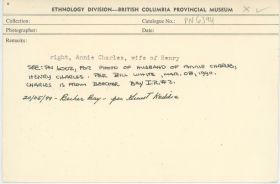 ETHNOLOGY DIVISION—BRITISH COLUMBIA PROVINCIAL MUSEUM
Collection: Catalogue No.: PN 6394
Photographer: Date:
Remarks:
right, Annie Charles, wife of Henry
SEE: PN 6002, FOR PHOTO OF HUSBAND OF ANNIE CHARLES,
HENRY CHARLES. PER BILL WHITE, MAR. 08, 1990.
CHARLES IS FROM BEECHER BAY I.R. #2.
20/05/99 - Becher Bay - per